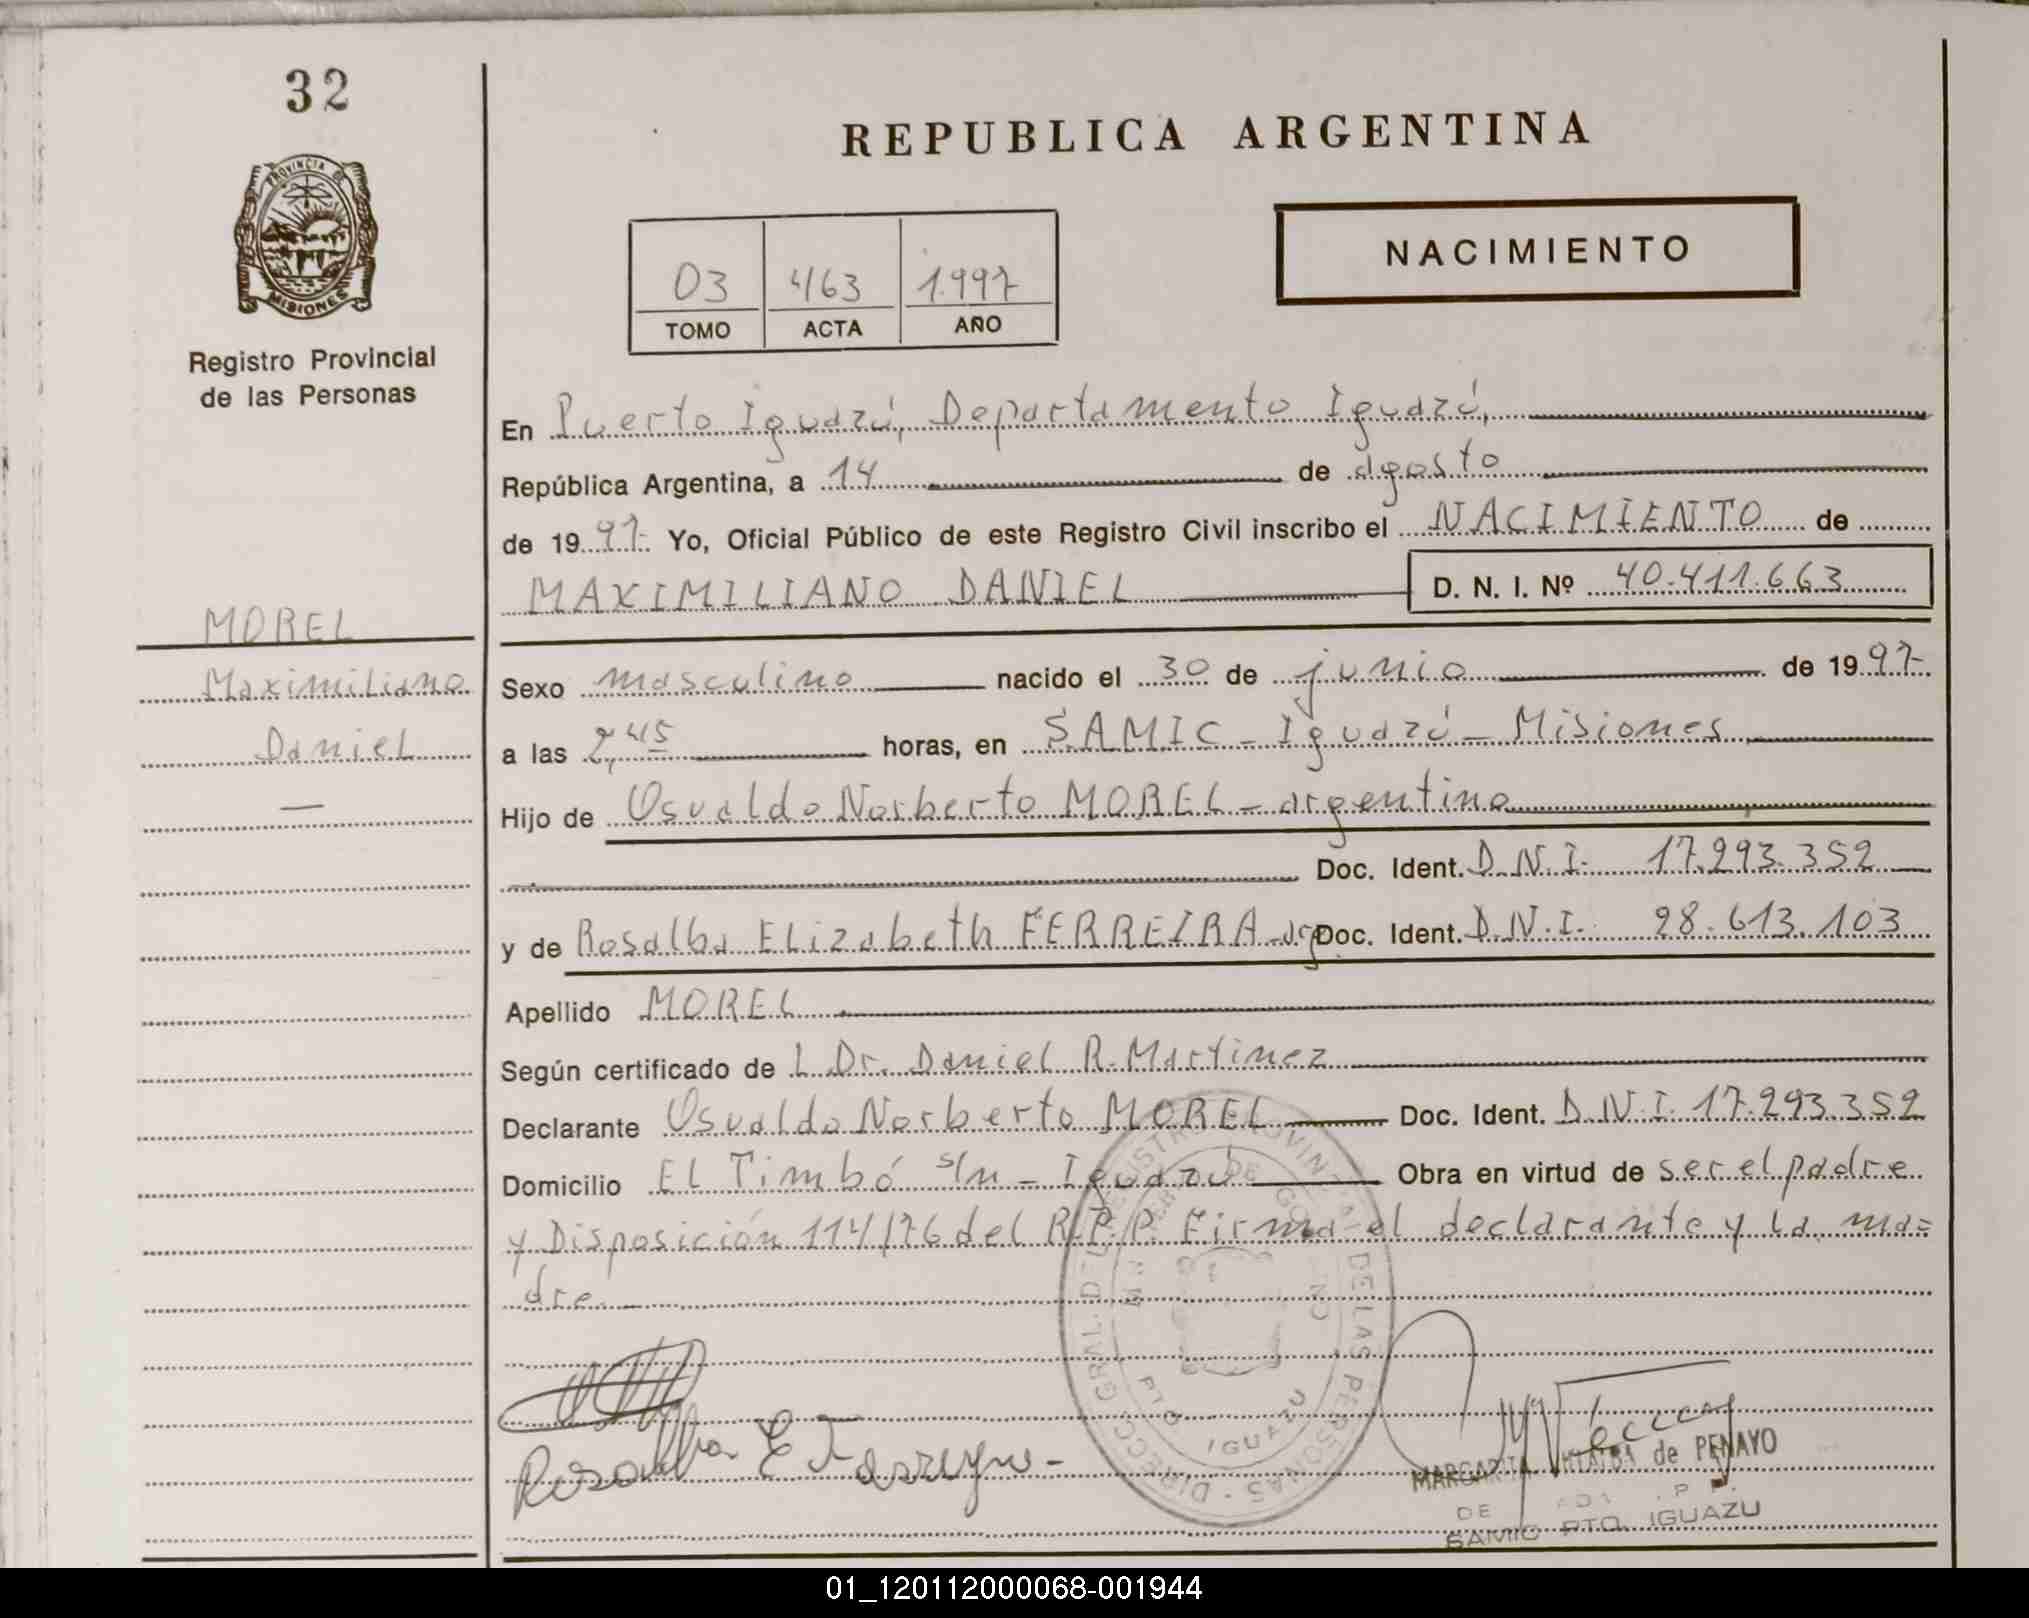 32
REPUBLICA ARGENTINA
PROVINCIA DE
MISIONES
NACIMIENTO
03 463 1.997
TOMO ACTA AÑO
Registro Provincial
de las Personas
En Puerto Iguazú, Departamento Iguazú,
República Argentina, a 14 de agosto
de 1997. Yo, Oficial Público de este Registro Civil inscribo el NACIMIENTO de
MAXIMILIANO DANIEL D. N. I. Nº 40.411.663
MOREL
Maximiliano
Daniel
Sexo masculino nacido el 30 de junio de 1997
a las 2,45 horas, en SAMIC - Iguazú - Misiones
Hijo de Osvaldo Norberto MOREL - argentino
Doc. Ident. D.N.I. 17.293.352
y de Rosalba Elizabeth FERREIRA - arg. Doc. Ident. D.N.I. 28.613.103
Apellido MOREL
Según certificado de L Dr. Daniel R. Martinez
Declarante Osvaldo Norberto MOREL Doc. Ident. D.N.I. 17.293.352
Domicilio El Timbó s/n - Iguazú Obra en virtud de ser el padre
y Disposición 114/76 del R.P.P. Firma el declarante y la ma=
dre.
DIRECC. GRAL. DEL REGISTRO PROVINCIAL DE LAS PERSONAS
PTO IGUAZU
Rosalba E
MARGARITA de PENAYO
SAMIC PTO. IGUAZU
01_120112000068-001944